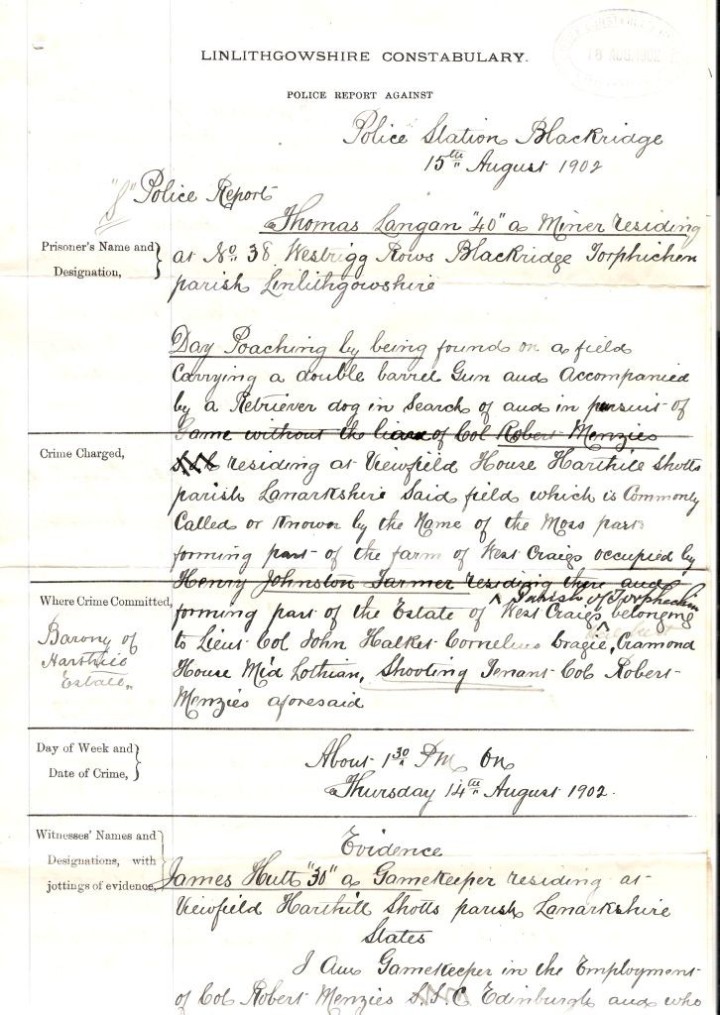 LINLITHGOWSHIRE CONSTABULARY.
POLICE REPORT AGAINST
Police Station Blackridge
15th August 1902
"S" Police Report
Prisoner's Name and
Designation,
Thomas Langan "40" a Miner residing
at No. 38 Westrigg Rows Blackridge Torphichen
parish Linlithgowshire
Day Poaching by being found on a field
Carrying a double barrel Gun and Accompanied
by a Retriever dog in Search of and in pursuit of
Game without the of Col Robert Menzies
Crime Charged,
residing at Viewfield House Harthill Shotts
parish Lanarkshire Said field which is Commonly
Called or known by the Name of the Moss park
forming part of the farm of West Craigs occupied by
Henry Johnston Farmer residing there and
Where Crime Committed,
Barony of
Harthill
Estate.
Parish of Torphichen
forming part of the Estate of West Craigs belonging
to Lieut Col John Halket Cornelius Cragie, Cramond
House Mid Lothian, Shooting Tenant Col Robert
Menzies aforesaid
Day of Week and
Date of Crime,
About 1 30 Pm On
Thursday 14th August 1902.
Witnesses' Names and
Designations, with
jottings of evidence,
Evidence
James Hutt "30" a Gamekeeper residing at
Viewfield Harthill Shotts parish Lanarkshire
States
I Am Gamekeeper in the Employment
of Col Robert Menzies Edinburgh and who